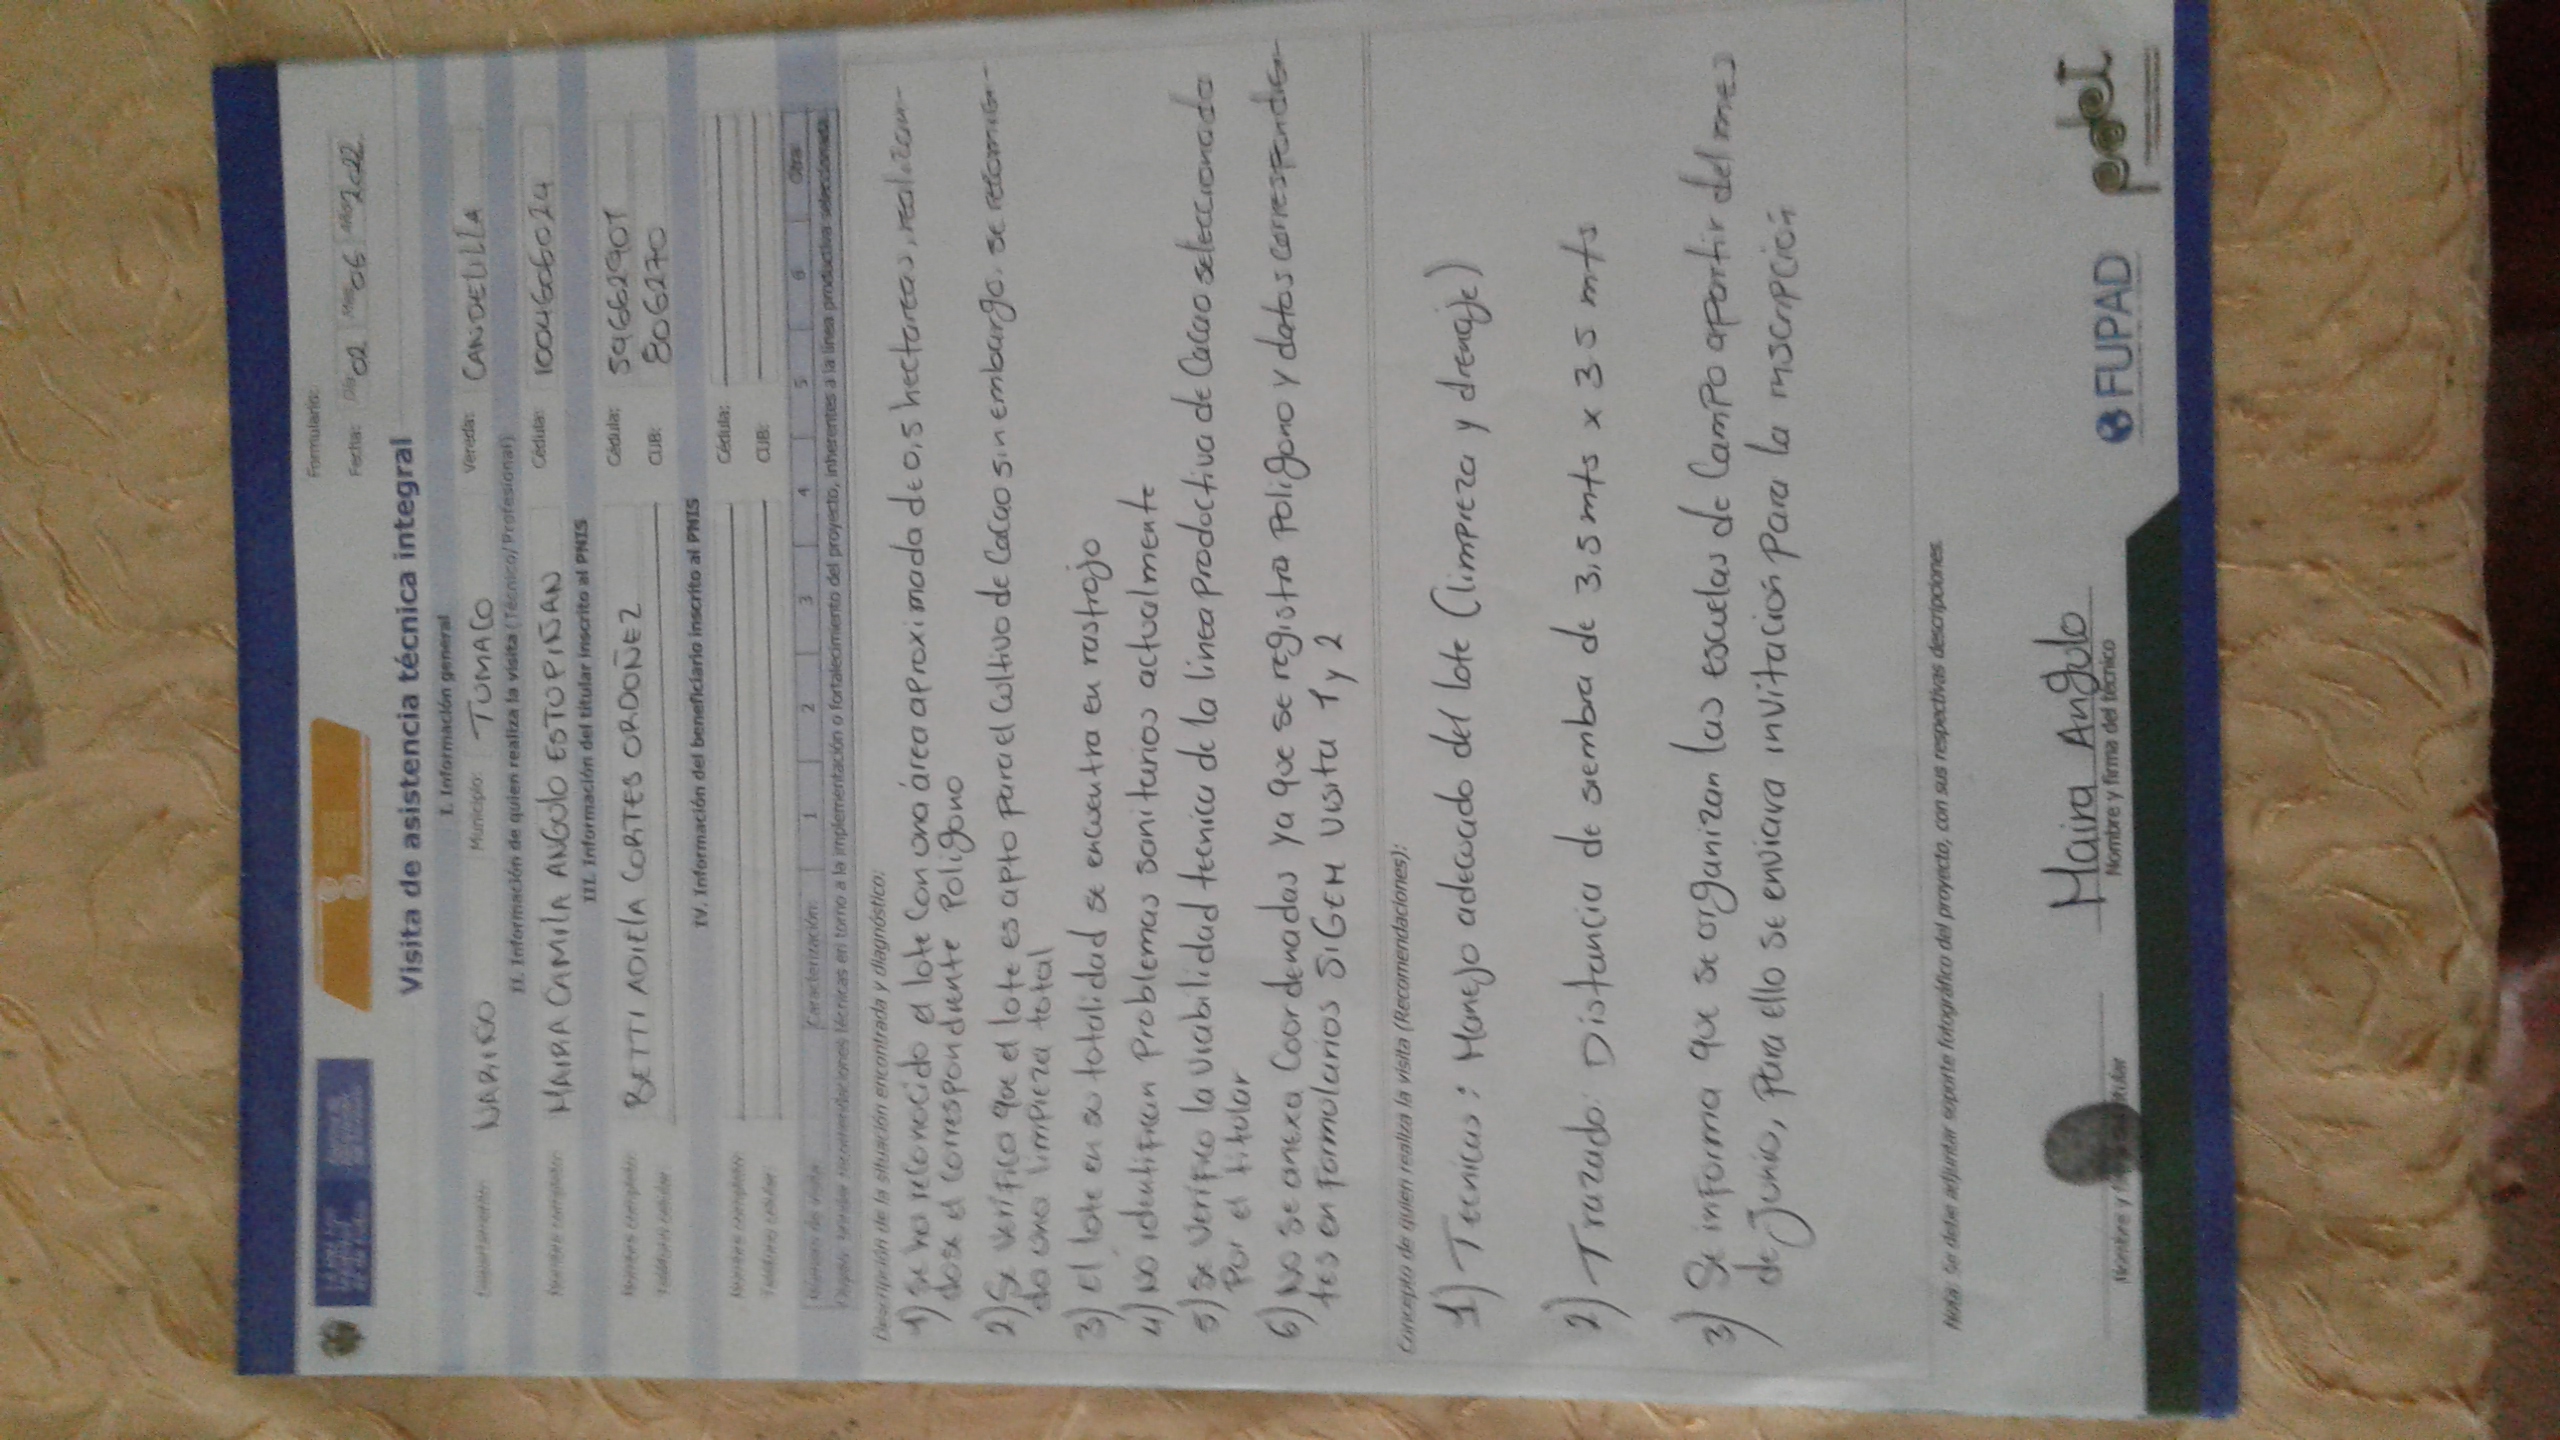 Formulario:
Fecha: Día 02 Mes 06 Año 2022
Visita de asistencia técnica integral
I. Información general
Departamento: NARIÑO Municipio: TUMACO Vereda: CANDELILLA
II. Información de quien realiza la visita (Técnico/Profesional)
Nombre completo: MAIRA CAMILA ANGULO ESTUPIÑAN Cédula: 1004606024
III. Información del titular inscrito al PNIS
Nombre completo: BETTI ADIELA CORTES ORDOÑEZ Cédula: 59662907
Teléfono celular: CUB: 806270
IV. Información del beneficiario inscrito al PNIS
Nombre completo: Cédula:
Teléfono celular: CUB:
Número de visita: Caracterización: 1 2 3 4 5 6 Otra
Objeto: brindar recomendaciones técnicas en torno a la implementación o fortalecimiento del proyecto, inherentes a la línea productiva seleccionada.
Descripción de la situación encontrada y diagnóstico:
1) se ha reconocido el lote con una área aproximada de 0,5 hectareas, realizan-
dose el correspondiente Poligono
2) Se verifico que el lote es apto para el cultivo de cacao sin embargo, se recomien-
da una limpieza total
3) el lote en su totalidad se encuentra en rastrojo
4) no identifican problemas sanitarios actualmente
5) se verifico la viabilidad tecnica de la linea productiva de cacao seleccionada
Por el titular
6) No se anexa coordenadas ya que se registra poligono y datos correspondien-
tes en formularios SIGEM visita 1 y 2
Concepto de quien realiza la visita (Recomendaciones):
1) Tecnicas: Manejo adecuado del lote (limpieza y drenaje)
2) Trazado: Distancia de siembra de 3,5 mts x 3 5 mts
3) Se informa que se organizan las escuelas de campo apartir del mes
de junio, para ello se enviara invitación para la inscripción
Nota: Se debe adjuntar soporte fotográfico del proyecto, con sus respectivas descripciones.
Maira Angulo
Nombre y titular
Nombre y firma del técnico
FUPAD
pdet